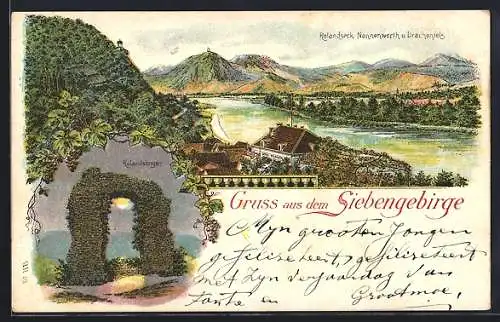 Rolandseck, Nonnenwerth u Drachenfels
Rolandsbogen
Gruss aus dem Siebengebirge
Myn grooten Jongen
gefeliseteert, gefeliseteert
met Zyn verjaardag van
Tante en Grootmoe,